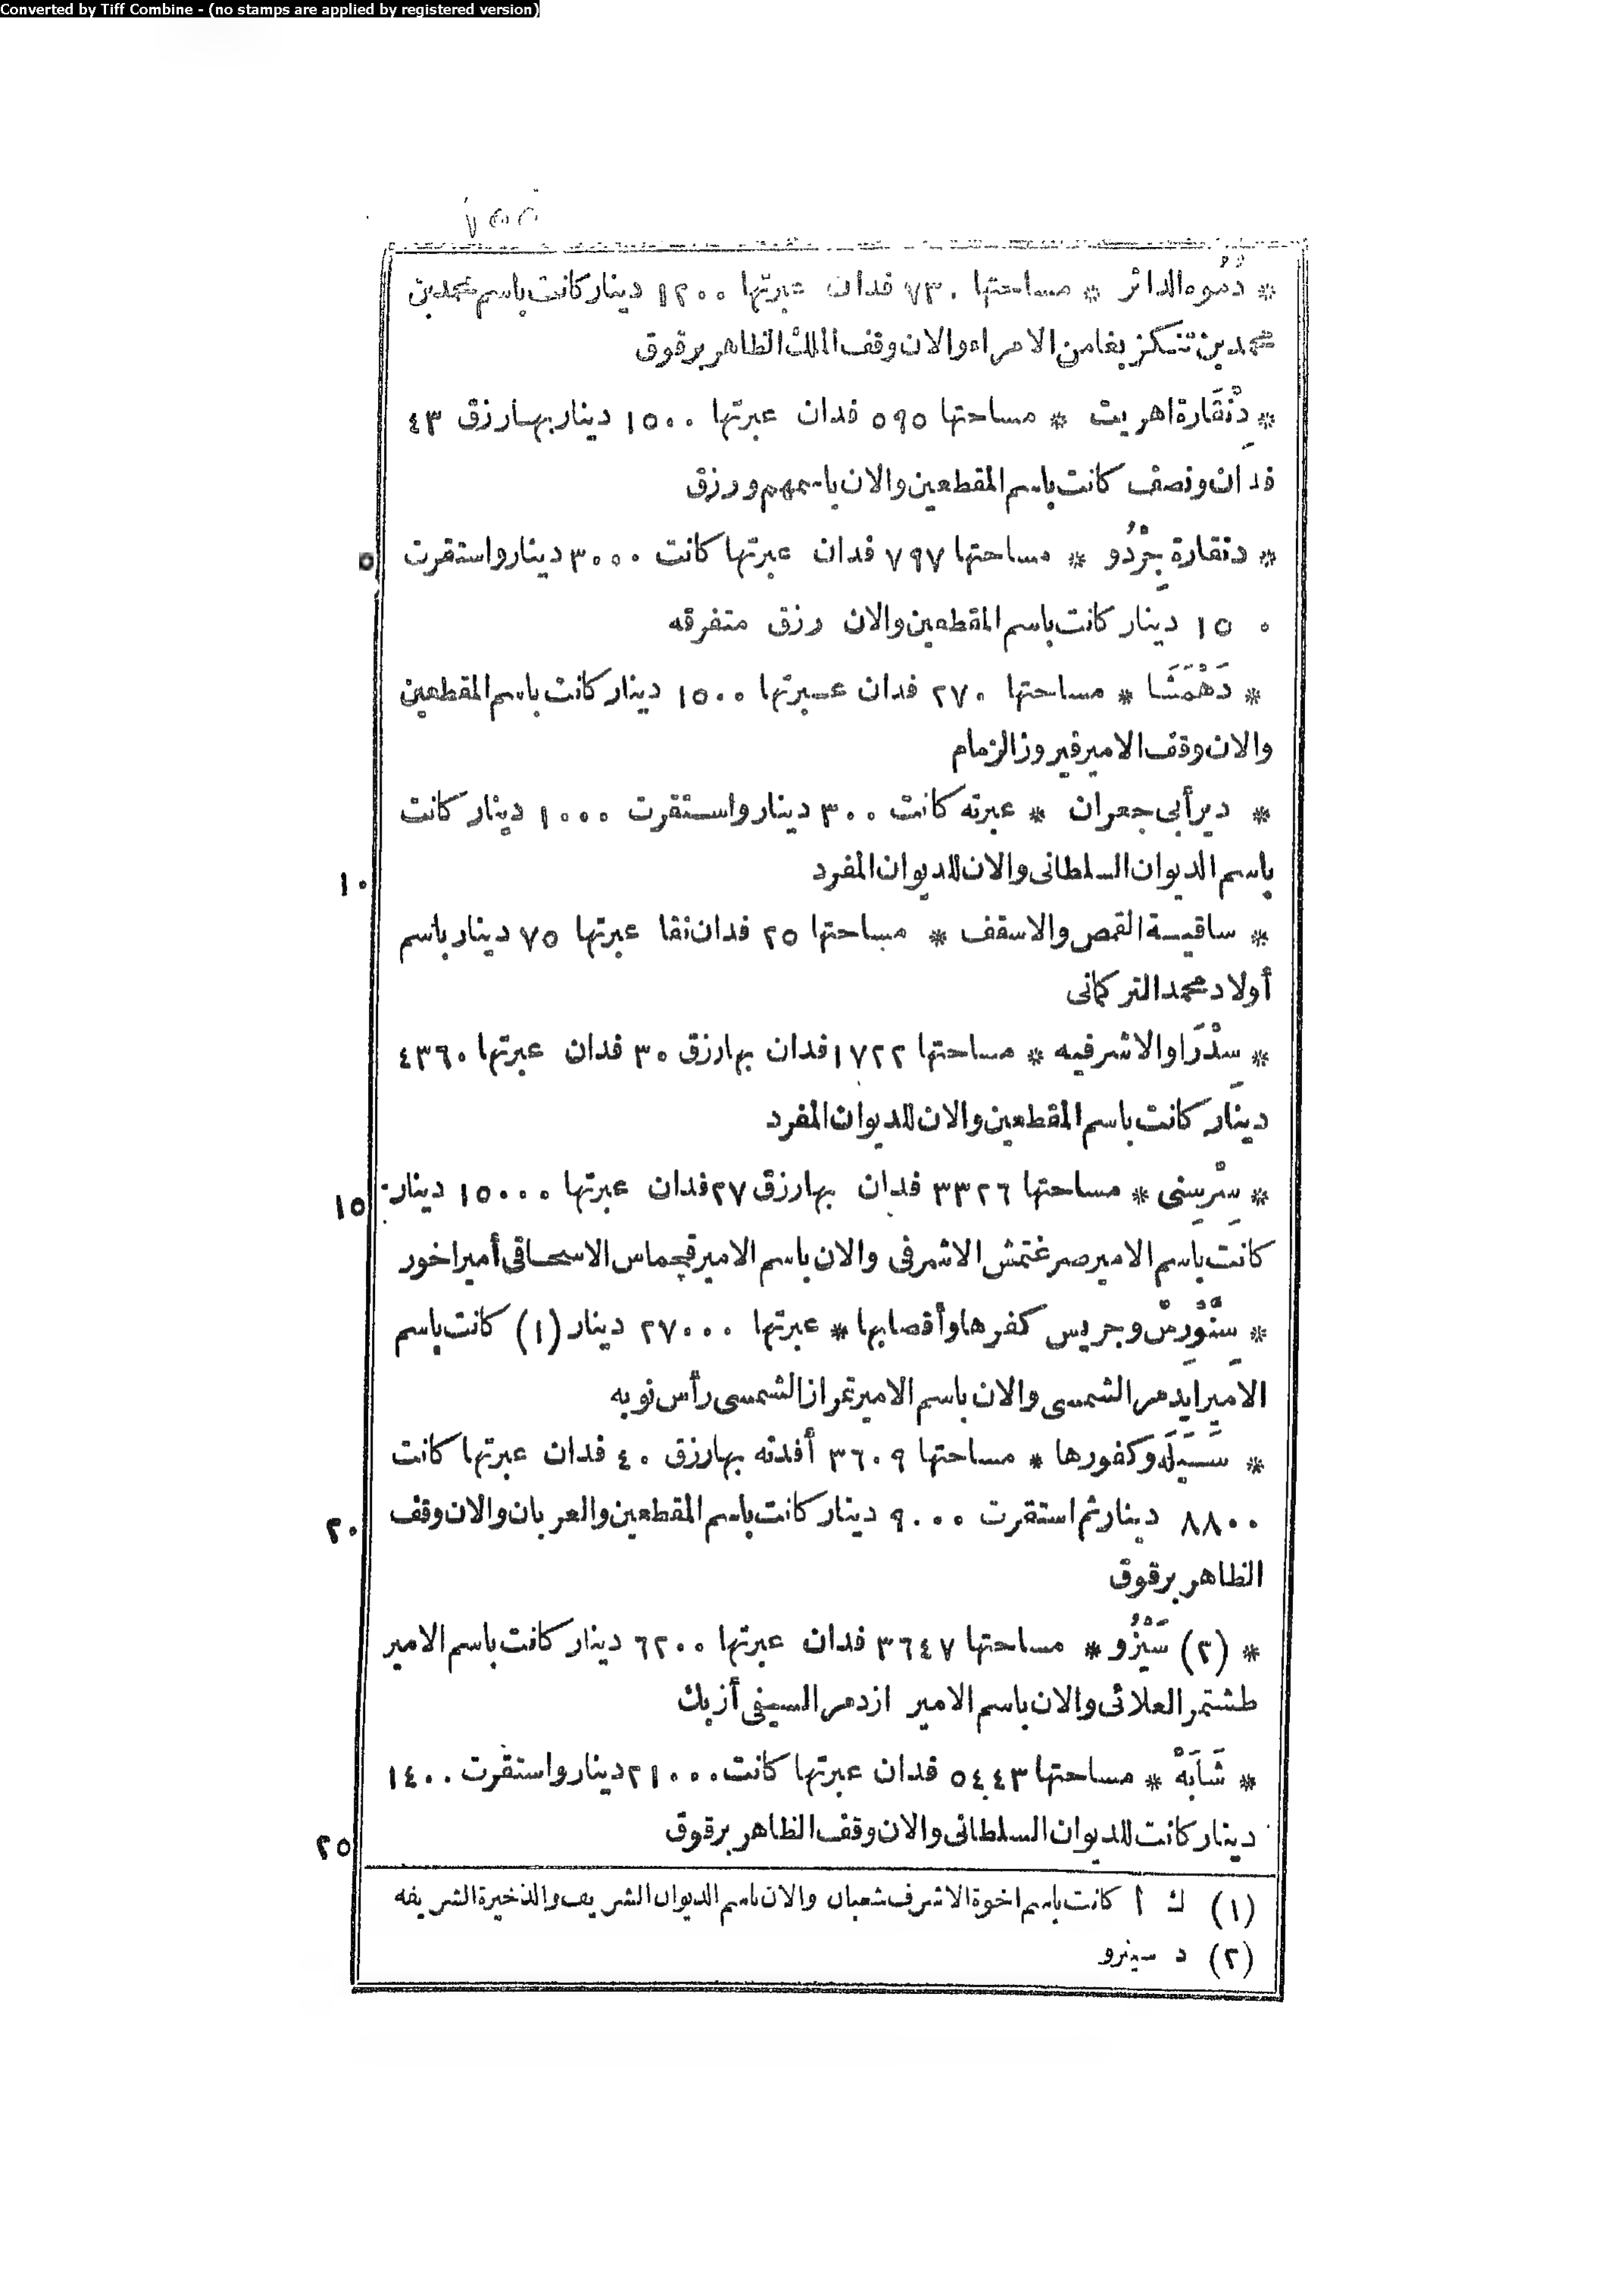 Converted by Tiff Combine - (no stamps are applied by registered version)
* دُمُوه الدائر * مساحتها ٧٣٠ فدان عبرتها ١٢٠٠ دينار كانت باسم محمد بن
محمد بن تنكز بغا من الامراء والان وقف الملك الظاهر برقوق
* دِنْقَارة اهريت * مساحتها ٥٩٥ فدان عبرتها ١٥٠٠ دينار بها رزق ٤٣
فدان ونصف كانت باسم المقطعين والان باسمهم ورزق
* دنقارة جِرْدُو * مساحتها ٧٩٧ فدان عبرتها كانت ٣٠٠٠ دينار واستقرت
٥
١٥٠ دينار كانت باسم المقطعين والان رزق متفرقه
* دَهْمَشَا * مساحتها ٢٧٠ فدان عبرتها ١٥٠٠ دينار كانت باسم المقطعين
والان وقف الامير فيروز الزمام
* دير أبى جعران * عبرته كانت ٣٠٠ دينار واستقرت ١٠٠٠ دينار كانت
باسم الديوان السلطانى والان للديوان المفرد
١٠
* ساقيـة القمص والاسقف * مساحتها ٢٥ فدان نقا عبرتها ٧٥ دينار باسم
أولاد محمد التركمانى
* سِدْرَا والاشرفيه * مساحتها ١٧٢٢ فدان بها رزق ٣٠ فدان عبرتها ٤٣٦٠
دينار كانت باسم المقطعين والان للديوان المفرد
* سِرْسِنى * مساحتها ٣٣٢٦ فدان بها رزق ٢٧ فدان عبرتها ١٥٠٠٠ دينار
١٥
كانت باسم الامير صرغتمش الاشرفى والان باسم الامير قجماس الاسحاقى أمير اخور
* سِنُّورِسْ وجريس كفرها وأقصابها * عبرتها ٢٧٠٠٠ دينار (١) كانت باسم
الامير ايدمر الشمسى والان باسم الامير تمراز الشمسى رأس نوبه
* سَيَلَه وكفورها * مساحتها ٣٦٠٩ أفدنه بها رزق ٤٠ فدان عبرتها كانت
٨٨٠٠ دينار ثم استقرت ٩٠٠٠ دينار كانت باسم المقطعين والعربان والان وقف
٢٠
الظاهر برقوق
* (٢) سَيْزُو * مساحتها ٣٦٤٧ فدان عبرتها ٦٢٠٠ دينار كانت باسم الامير
طشتمر العلائى والان باسم الامير ازدمر السيفى أزبك
* شَانَهْ * مساحتها ٥٤٤٣ فدان عبرتها كانت ٢١٠٠٠ دينار واستقرت ١٤٠٠
دينار كانت للديوان السلطانى والان وقف الظاهر برقوق
٢٥
(١) ك أ كانت باسم اخوة الاشرف شعبان والان باسم الديوان الشريف والذخيرة الشريفه
(٢) د سينرو